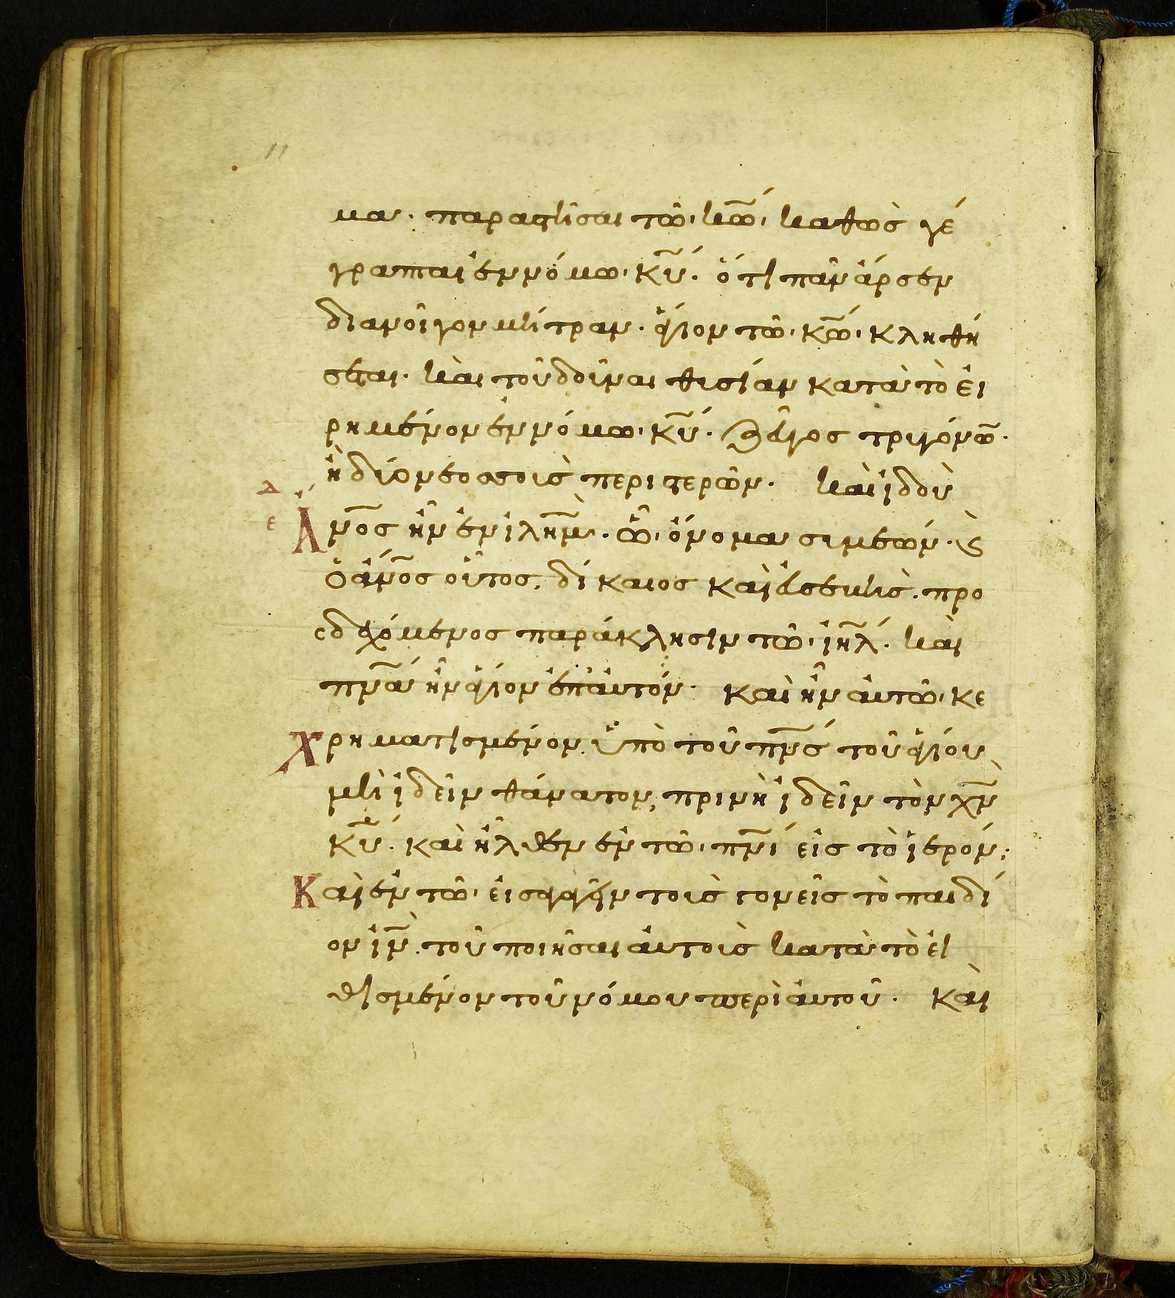 11
μα· παραστῆσαι τῶ· κ̅ω̅· καθὼς γέ
γραπται ἐν νόμω· κ̅υ̅· ὅτι πᾶν ἄρσεν
διανοῖγον μήτραν· ἅγιον τῶ· κ̅ω̅· κληθή
σεται· καὶ τοῦ δοῦναι θυσίαν κατὰ τὸ εἰ
ρημένον ἐν νόμω· κ̅υ̅· ζεῦγος τρυγόνω̅·
ἢ δύο νεοσσοὺς περιστερῶν· καὶ ἰδοὺ
δ
ε
Ἄν̅ο̅ς ἦν ἐν ἰλη̅μ̅· ὧ· ὄνομα συμεών· ϗ
ὁ ἄν̅ο̅ς οὗτος, δίκαιος καὶ εὐσεβὴς· προ
σδεχόμενος παράκλησιν τοῦ· ἰη̅λ̅· καὶ
πν̅α̅ ἦν ἅγιον ἐπ' αὐτόν· καὶ ἦν αὐτῶ· κε
χρηματισμένον· ὑπὸ τοῦ πν̅ς̅ τοῦ ἁγίου
μὴ ἰδεῖν θάνατον, πρινὴ ἰδεῖν τὸν χ̅ν̅
κ̅υ̅· καὶ ἦλθεν ἐν τῶ· πν̅ι̅ εἰς τὸ ἱερόν·
Καὶ ἐν τῶ· εἰσαγαγεῖν τοὺς γονεῖς τὸ παιδί
ον ἰ̅ν̅· τοῦ ποιῆσαι αὐτοὺς κατὰ τὸ εἰ
θισμένον τοῦ νόμου περὶ αὐτοῦ· καὶ